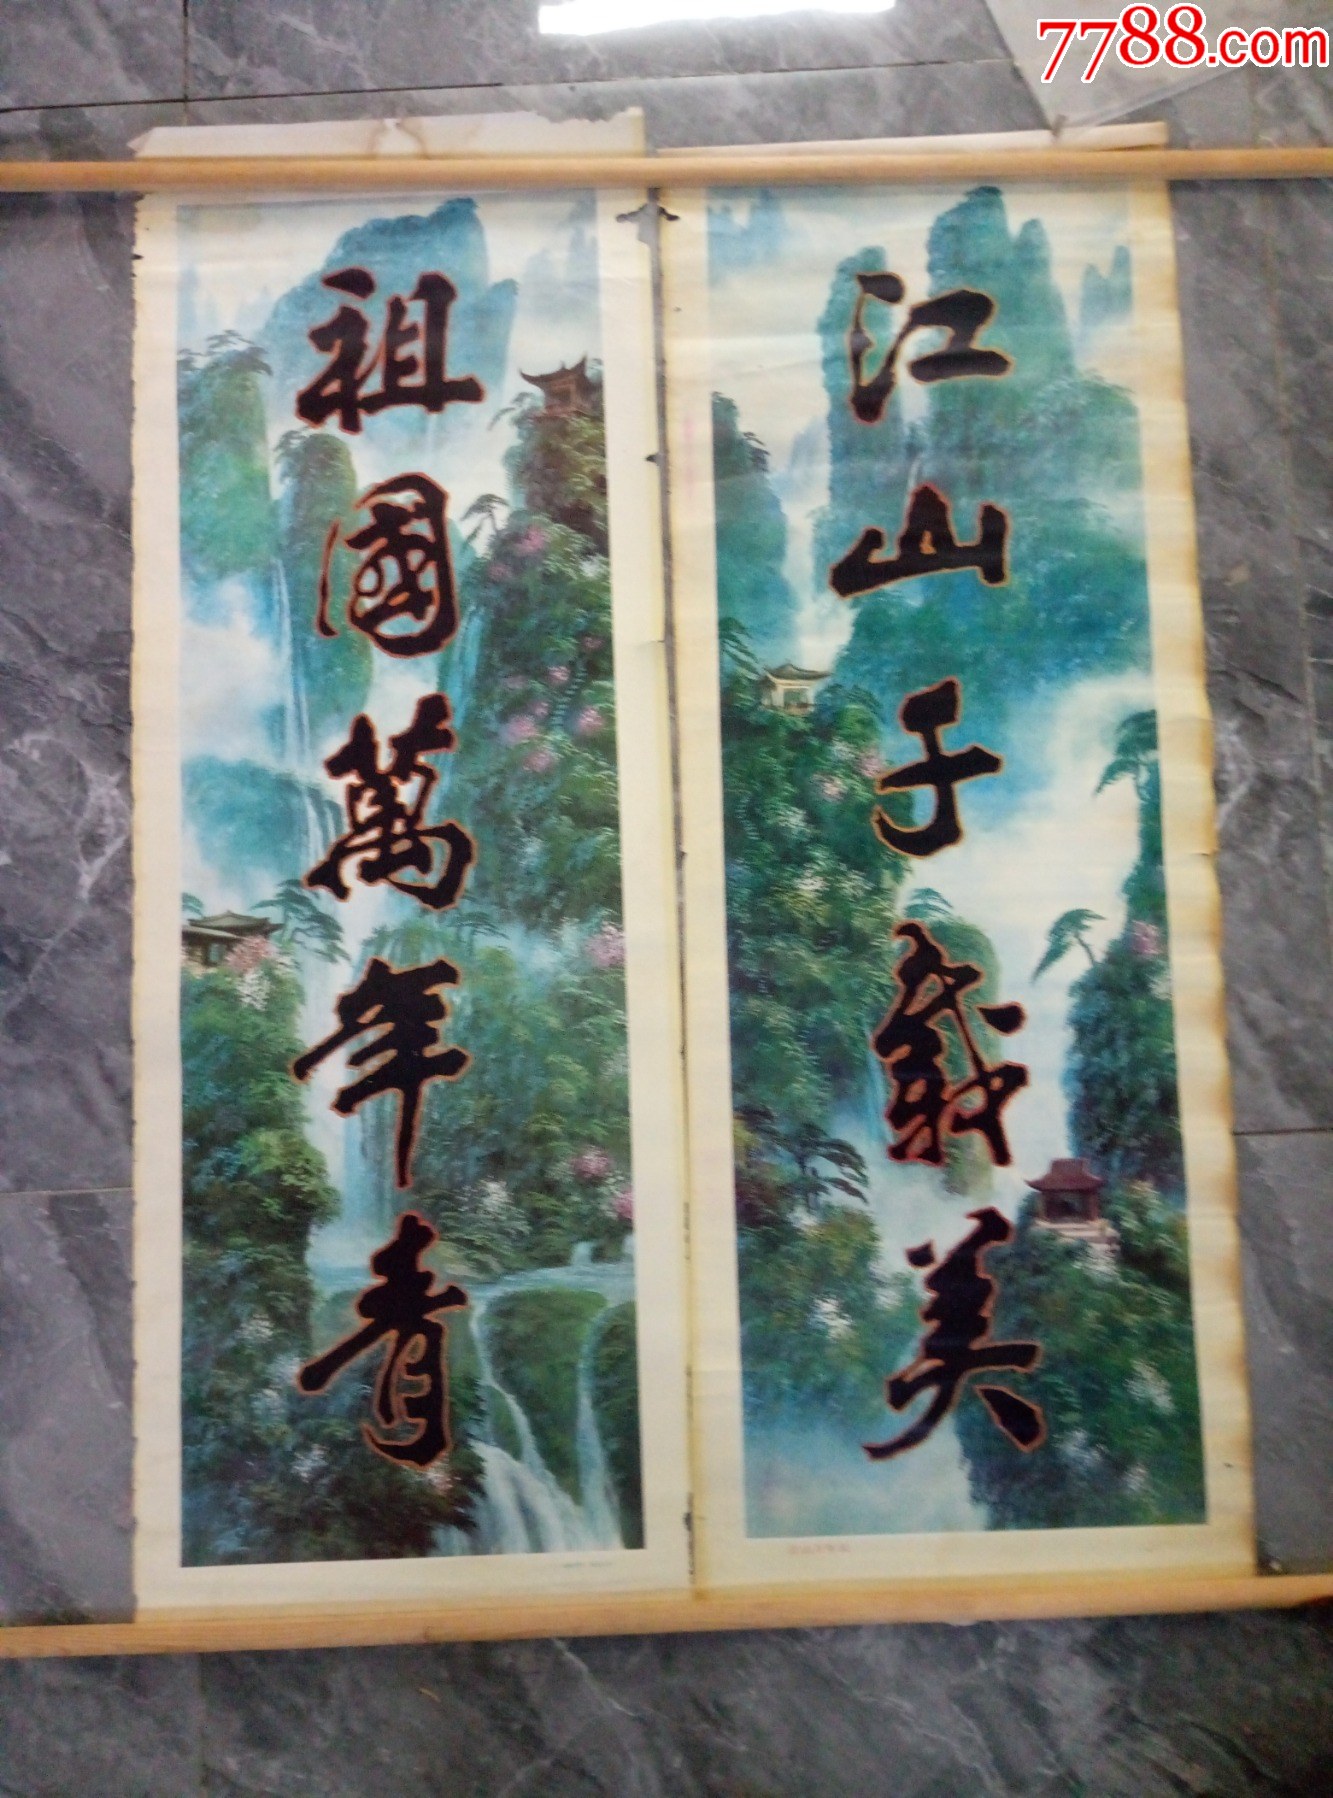 7788.com
江山千载美
祖國萬年青